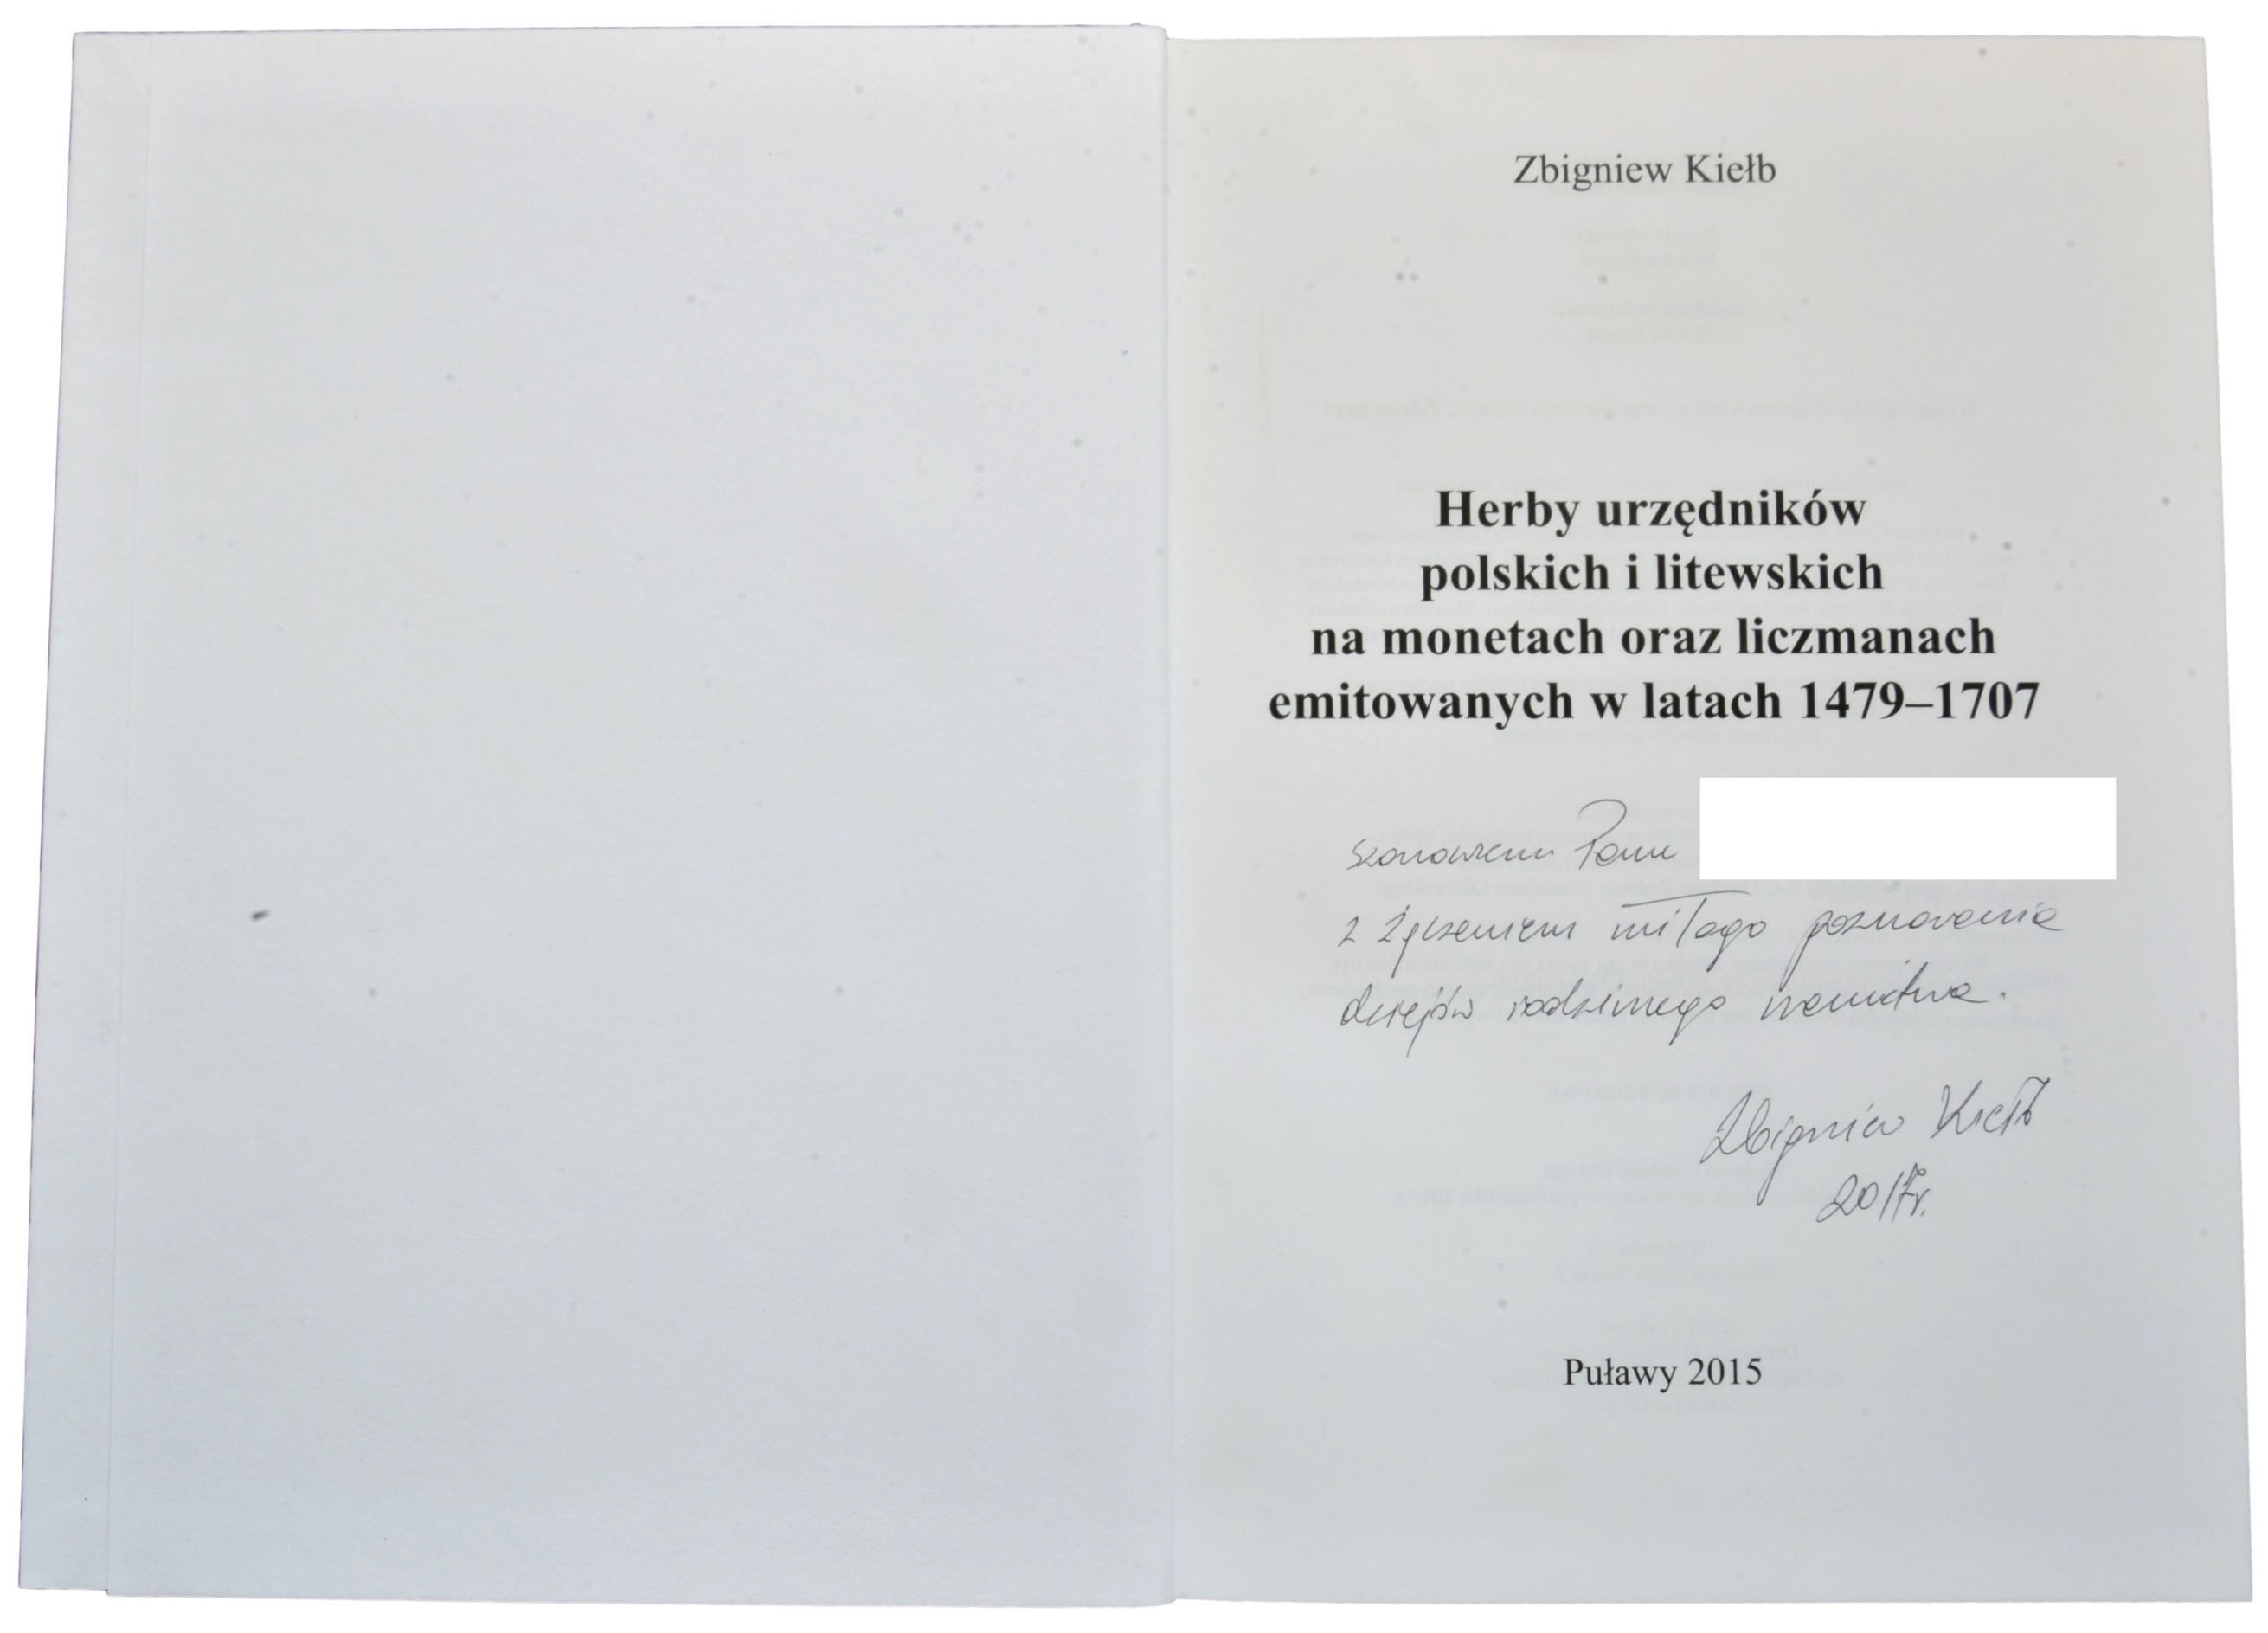 Zbigniew Kiełb
Herby urzędników
polskich i litewskich
na monetach oraz liczmanach
emitowanych w latach 1479–1707
Szanownemu Panu
z życzeniem miłego poznawania
dziejów rodzimego mennictwa.
Zbigniew Kiełb
2017r.
Puławy 2015